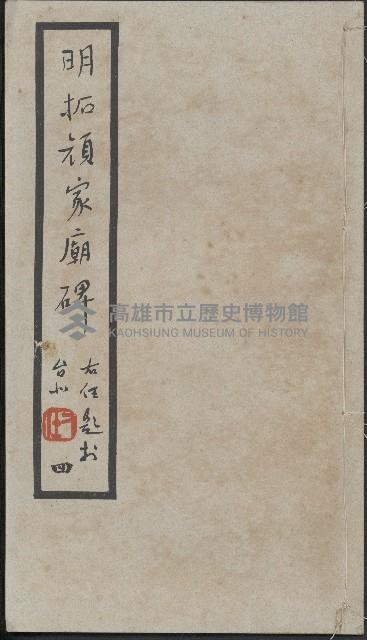 明拓顏家廟碑
右任題於
台北
四
高雄市立歷史博物館
KAOHSIUNG MUSEUM OF HISTORY